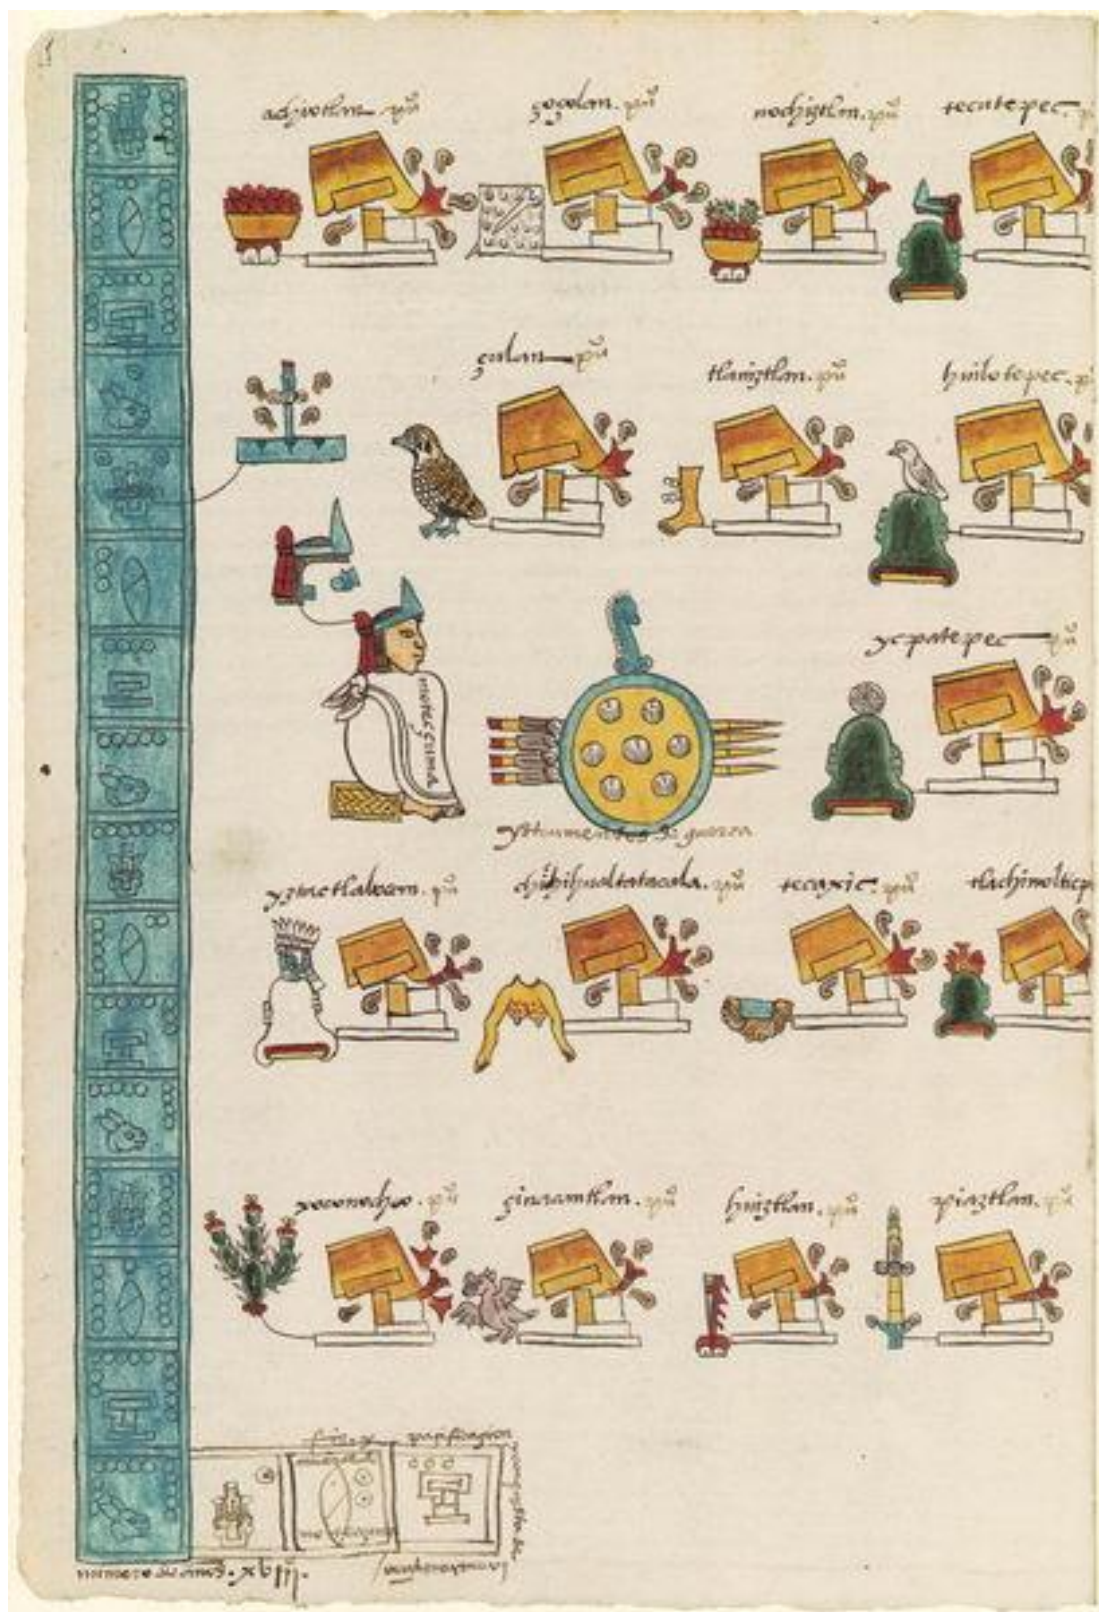 achiotlan. puº
çoçolan. puº
nochiztlan. puº
tecutepec. p
çulan puº
tlaniztlan. puº
huilotepec. p
motecçuma
ycpatepec puº
ystrumentos de guerra
yztactlalocan. puº
chichihualtatacala. puº
tecaxic. puº
tlachinolticp
xoconochco. puº
çinacantlan. puº
huiztlan. puº
piaztlan. puº
fin y pacificaçion
numero de años. xviii.